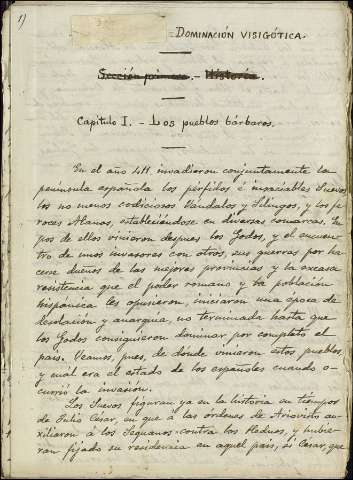 1)
DOMINACIÓN VISIGÓTICA.
Sección primera.- Historia.
Capítulo I. - Los pueblos bárbaros.
En el año 411 invadieron conjuntamente la
península española los pérfidos é insaciables Suevos,
los no menos codiciosos Vándalos y Silingos, y los fe-
roces Alanos, estableciéndose en diversas comarcas. En
pos de ellos vinieron despues los Godos, y el encuen-
tro de unos invasores con otros, sus guerras por ha-
cerse dueños de las mejores provincias y la escasa
resistencia que el poder romano y la población
hispánica les opusieron, iniciaron una época de
desolación y anarquía, no terminada hasta que
los Godos consiguieron dominar por completo el
país. Veamos, pues, de dónde vinieron estos pueblos,
y cuál era el estado de los españoles cuando o-
currió la invasión.
Los Suevos figuran ya en la historia en tiempos
de Julio César, en que á las órdenes de Ariovisto au-
xiliaron á los Sequanos contra los Heduos, y hubie-
ran fijado su residencia en aquel país, si César, que